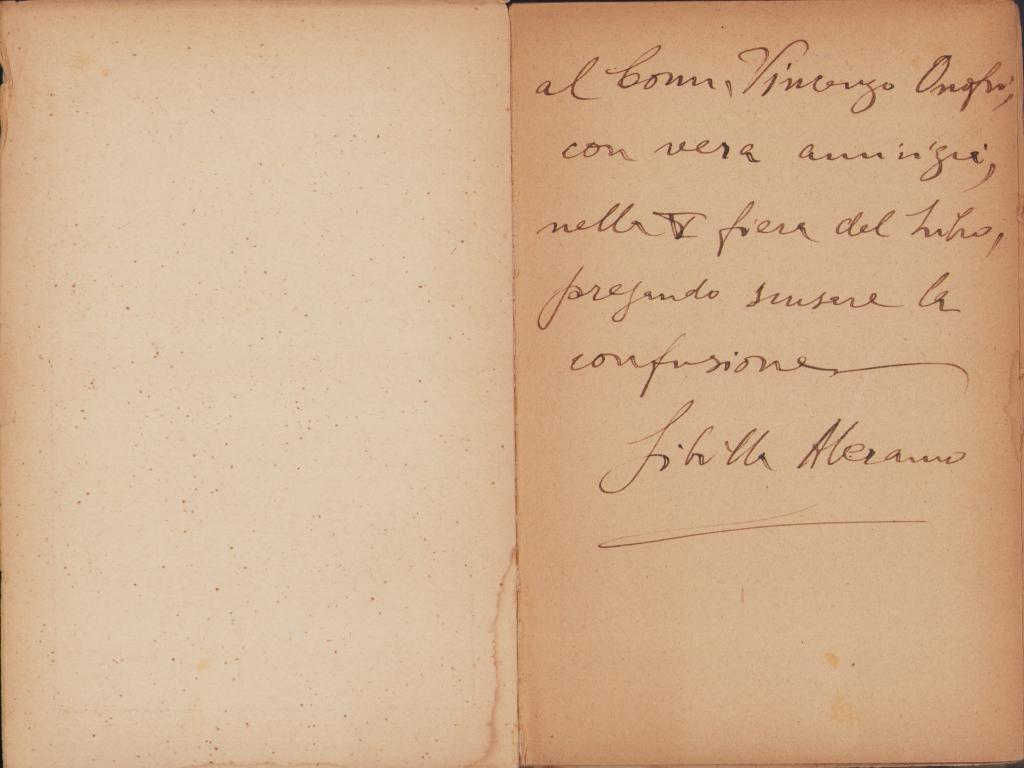 al Comm. Vincenzo Onofri,
con vera amicizia,
nella V fiera del Libro,
pregando scusare la
confusione
Sibilla Aleramo